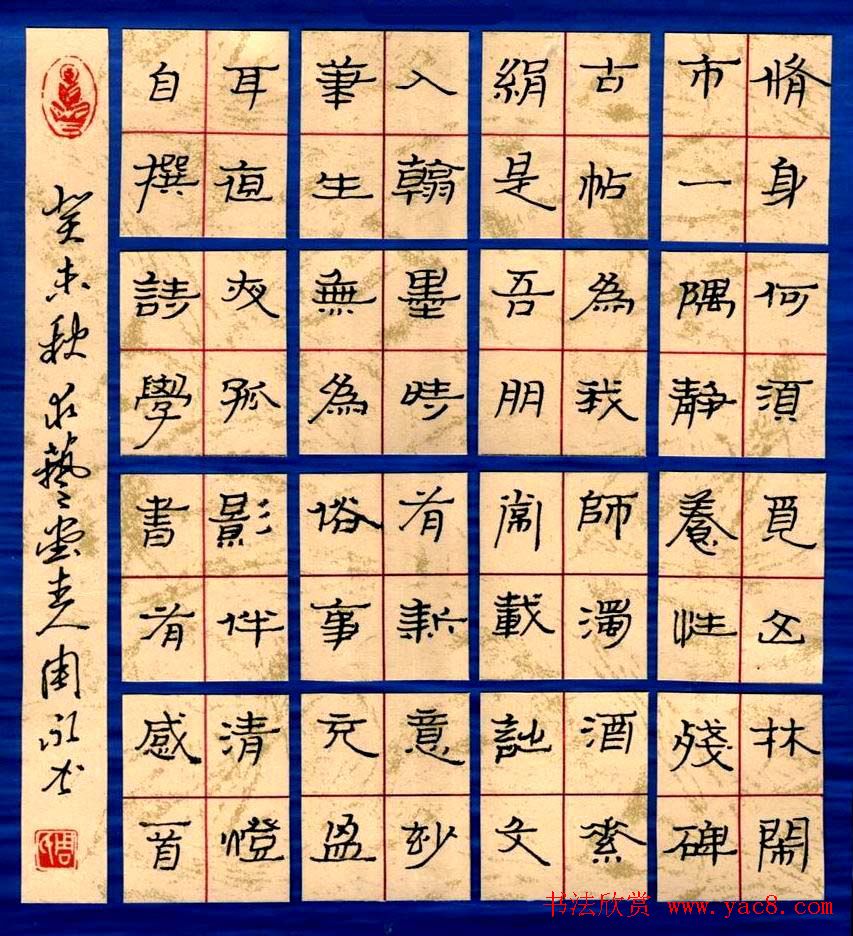 脩身何須覓山林閑
市一隅靜養性殘碑
古帖為我師濁酒素
絹是吾朋常載詘文
入翰墨時有新意妙
筆生無為俗事充盈
耳直夜孤影伴清燈
自撰詩學書有感一首
癸未秋求藝堂主人周永
书法欣赏 www.yac8.com